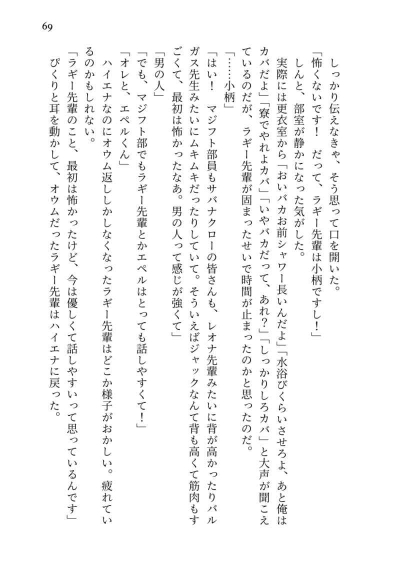 69
しっかり伝えなきゃ、そう思って口を開いた。
「怖くないです！　だって、ラギー先輩は小柄ですし！」
しんと、部室が静かになった気がした。
実際には更衣室から「おいバカお前シャワー長いんだよ」「水浴びくらいさせろよ、あと俺は
カバだよ」「寮でやれよカバ」「いやバカだって、あれ？」「しっかりしろカバ」と大声が聞こえ
ているのだが、ラギー先輩が固まったせいで時間が止まったのかと思ったのだ。
「……小柄」
「はい！　マジフト部員もサバナクローの皆さんも、レオナ先輩みたいに背が高かったりバル
ガス先生みたいにムキムキだったりしていて。そういえばジャックなんて背も高くて筋肉もす
ごくて、最初は怖かったなあ。男の人って感じが強くて」
「男の人」
「でも、マジフト部でもラギー先輩とかエペルはとっても話しやすくて！」
「オレと、エペルくん」
ハイエナなのにオウム返ししかしなくなったラギー先輩はどこか様子がおかしい。疲れてい
るのかもしれない。
「ラギー先輩のこと、最初は怖かったけど、今は優しくて話しやすいって思っているんです」
ぴくりと耳を動かして、オウムだったラギー先輩はハイエナに戻った。